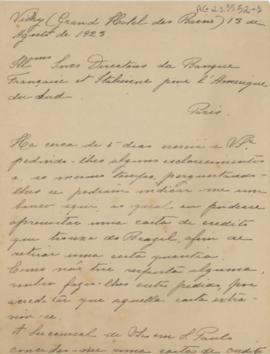 AG23.55.52-2
Vichy (Grand Hotel des Bains) 13 de
Agosto de 1923
Illmos Snres Directores da Banque
Française et Italienne pour l'Amerique
du Sud
Paris.
Ha cerca de 5 dias escrevi a VSas
pedindo-lhes alguns esclarecimentos
e, ao mesmo tempo, perguntando-
lhes se podiam indicar me um
banco aqui, ao qual eu pudesse
apresentar uma carta de credito
que trouxe do Brazil, afim de
retirar uma certa quantia.
Como não tive resposta alguma,
venho fazer-lhes outro pedido, por
acreditar que aquella carta extra-
viou-se.
A Succursal de Vsas em S. Paulo
concedeu-me uma carta de credito